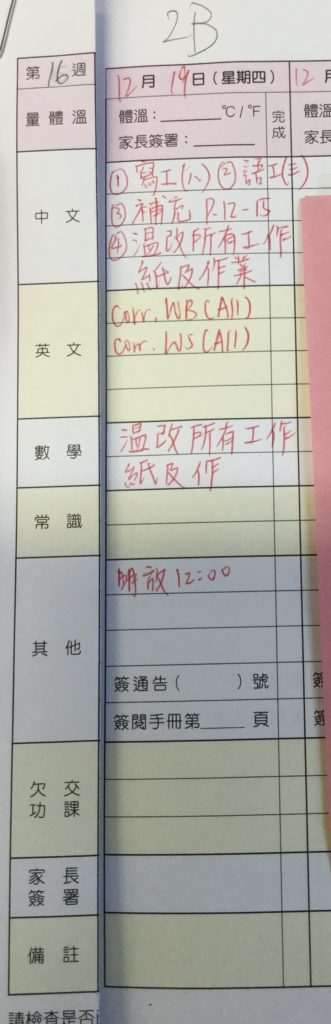 2B
第16週
12月19日(星期四)
12月
量體溫
體溫：______°C/°F
家長簽署：______
完成
中文
① 寫工(八) ② 語工(三)
③ 補充 P.12-15
④ 温改所有工作
紙及作業
英文
Corr. WB (All)
Corr. WS (All)
數學
温改所有工作
紙及作
常識
其他
明放12:00
簽通告( )號
簽閱手冊第____頁
欠交功課
家長簽署
備註
請檢查是否